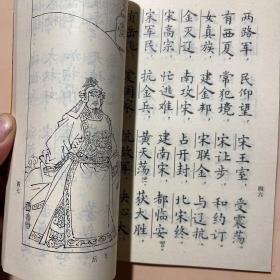 两路军 民仰望 宋王室 受震荡
有西夏 常犯境 宋让步 和约订
女真族 建金邦 宋联金 与辽抗
金灭辽 南攻宋 占开封 北宋终
宋高宗 忙逃难 建南宋 都临安
宋军民 抗金兵 黄天荡 获大胜
决心大
四六
四七